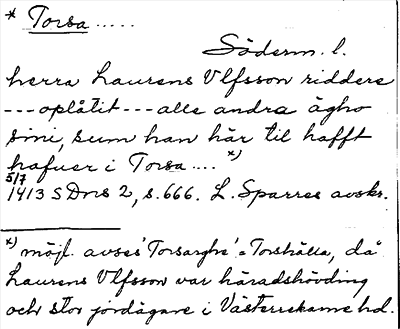 * Torsa .....
Söderm. l.
herra Laurens Ulfsson riddere
--- oplåtit --- alle andra ägho
sini, sum han här til hafft
hafuer i Torsa .... *)
5/7
1413 SDns 2, s. 666. L. Sparres avskr.
*) möjl. avses 'Torsarghe' = Torshälla, då
Laurens Ulfsson var häradshövding
och stor jordägare i Västerrekarne hd.